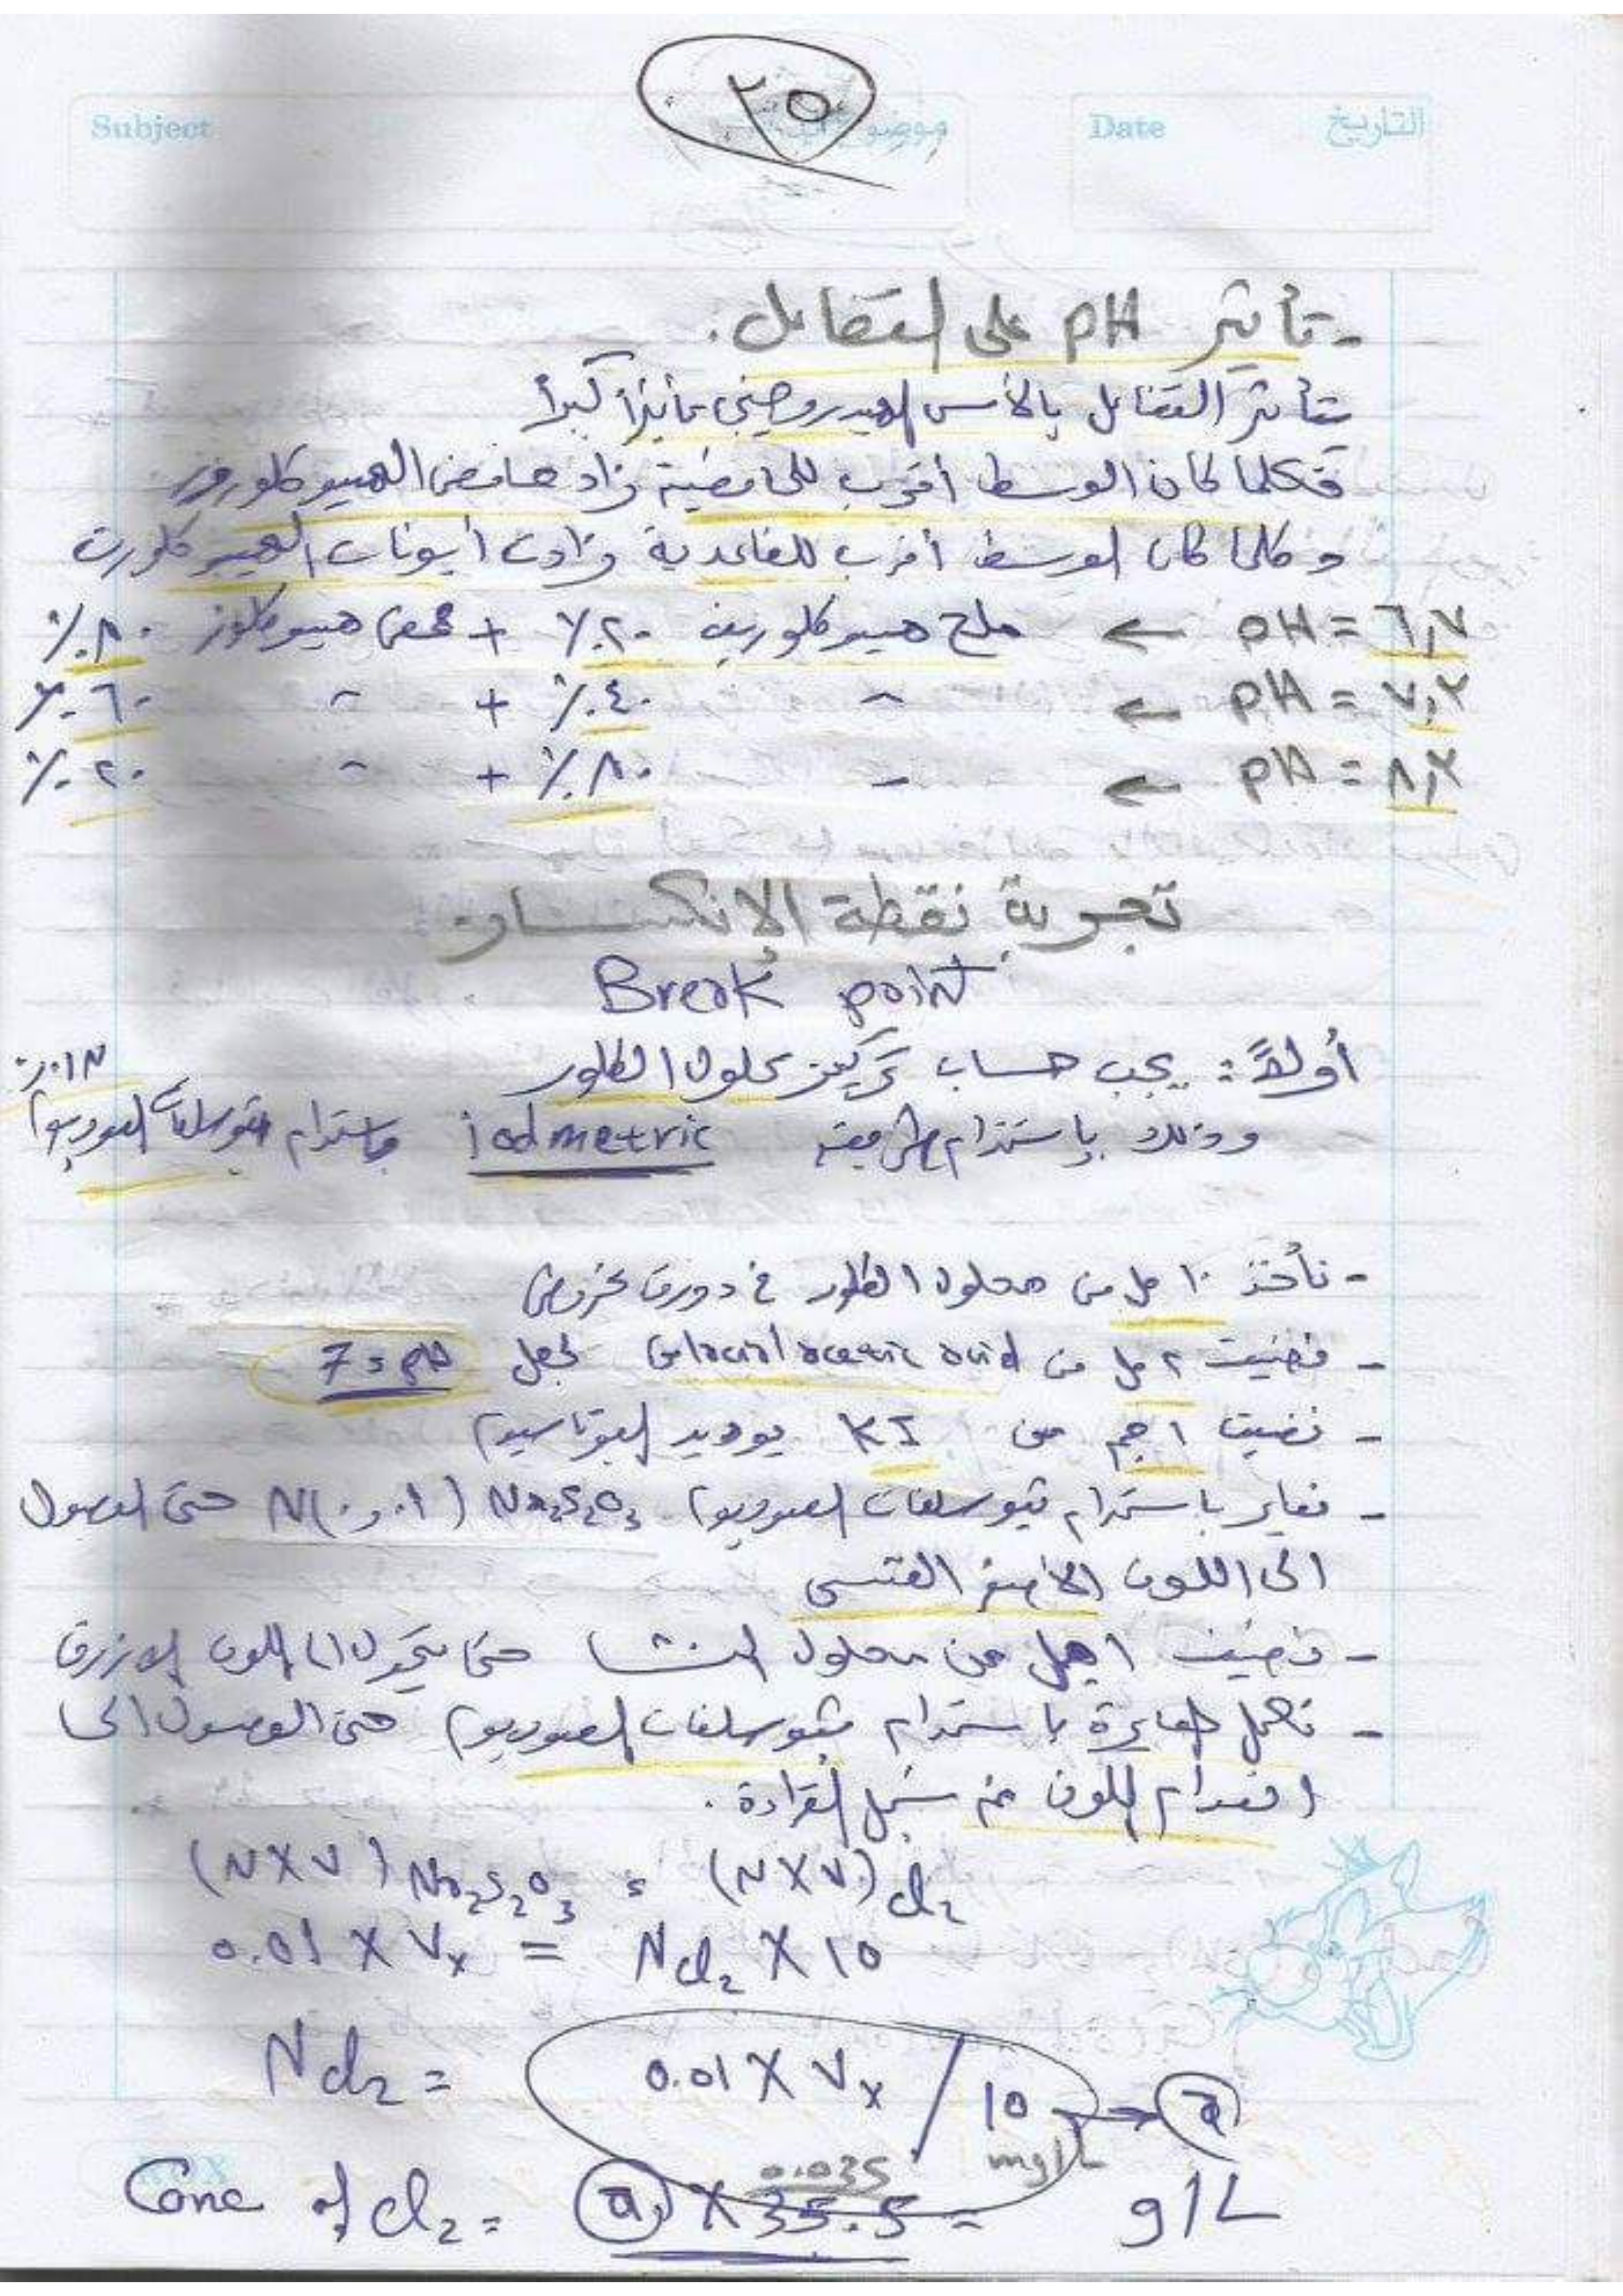 ٢٥
Subject
موضوع الدرس
Date
التاريخ
- تأثير pH على التفاعل.
يتأثر التفاعل بالأس الهيدروجيني تأثيراً كبيراً
فكلما كان الوسط أقرب للحامضية زاد حامض الهيبوكلوروز
وكلما كان الوسط أقرب للقاعدية زادت أيونات الهيبوكلوريت
pH = ٦,٧ ← ملح هيبوكلوريت ٢٠٪ + حمض هيبوكلوز ٨٠٪
pH = ٧,٢ ← " ٤٠٪ + " ٦٠٪
pH = ٨,٢ ← " ٨٠٪ + " ٢٠٪
تجربة نقطة الإنكسار
Break point
أولاً: يجب حساب تركيز محلول الكلور
وذلك بإستخدام طريقة iodmetric وإستخدام ثيوسلفات الصوديوم ٠,٠١N
- نأخذ ١٠ مل من محلول الكلور في دورق مخروطي
- نضيف ٢ مل من Glacial acetic acid لجعل pH = 7
- نضيف ١ جم من KI يوديد البوتاسيوم
- نعاير باستخدام ثيوسلفات الصوديوم Na2S2O3 (٠,٠١)N حتى الوصول
الى اللون الأصفر القشى
- نضيف ١ مل من محلول النشا حتى يتحول الى اللون الازرق
- نكمل المعايرة باستخدام ثيوسلفات الصوديوم حتى الوصول الى
انعدام اللون ثم نسجل القراءة.
(N X V) Na2S2O3 = (N X V) Cl2
0.01 X Vx = N Cl2 X 10
N Cl2 = 0.01 X Vx / 10 → a
0.035 mg/L
Conc of Cl2 = a X 35.5 = g/L